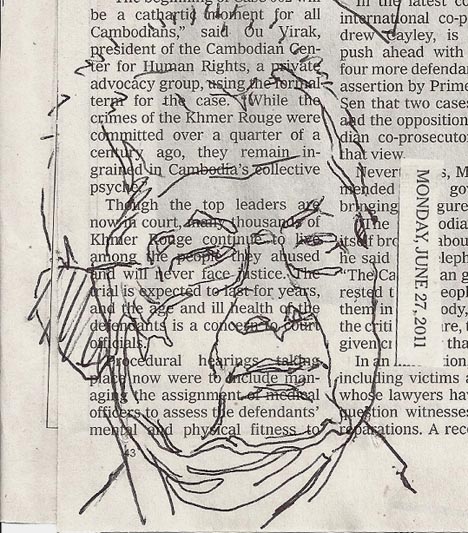 The beginning of Case 002 will
be a cathartic moment for all
Cambodians," said Ou Virak,
president of the Cambodian Cen-
ter for Human Rights, a private
advocacy group, using the formal
term for the case. "While the
crimes of the Khmer Rouge were
committed over a quarter of a
century ago, they remain in-
grained in Cambodia's collective
psyche."
Though the top leaders are
now in court, many thousands of
Khmer Rouge continue to live
among the people they abused
and will never face justice. The
trial is expected to last for years,
and the age and ill health of the
defendants is a concern to court
officials.
Procedural hearings taking
place now were to include man-
aging the assignment of medical
officers to assess the defendants'
mental and physical fitness to
43
In the latest co
international co-p
drew Cayley, is
push ahead with
four more defendan
assertion by Prime
Sen that two cases
and the opposition
dian co-prosecutor
that view.
Nevert s, M
mended go
bringing gure
The odia
itself bro abou
he said eleph
"The Ca an g
rested t eopl
them in ody,
the criti re, t
given cr tha
In an tion,
including victims a
whose lawyers hav
question witnesses
reparations. A rec
MONDAY, JUNE 27, 2011